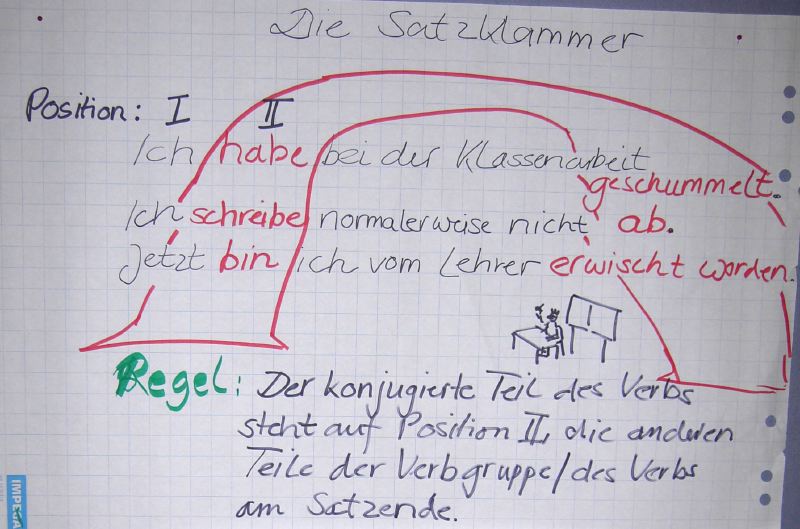 Die Satzklammer
Position: I II
Ich habe bei der Klassenarbeit
geschummelt.
Ich schreibe normalerweise nicht ab.
Jetzt bin ich vom Lehrer erwischt worden.
Regel: Der konjugierte Teil des Verbs
steht auf Position II, die anderen
Teile der Verbgruppe/des Verbs
am Satzende.